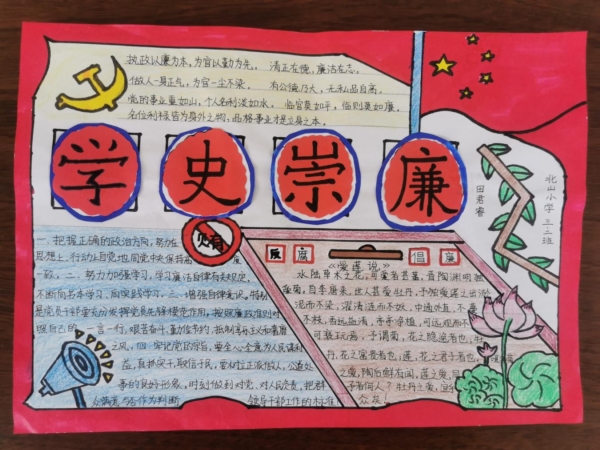 执政以廉为本，为官以勤为先。 清正在德，廉洁在志。
做人一身正气，为官一尘不染。 有公德乃大，无私品自高。
党的事业重如山，个人名利淡如水。 临官莫如平，临财莫如廉。
名位利禄皆为身外之物，品格事业才是立身之本。
学史崇廉
北山小学 三三班
田君睿
贪
一、把握正确的政治方向，努力在
思想上、行动上自觉地同党中央保持高
一致。二、努力加强学习，学习廉洁自律有关规定，
不断向书本学习、向实践学习。三、增强自律意识。特别
是党员干部要充分发挥党员先锋模范作用，按照廉政准则对
照自己的一言一行，艰苦奋斗，勤俭节约，抵制
之风。四、牢记党的宗旨，要全心全意为人民谋利
益，真抓实干，取信于民，要树立正派做人，公道处
事的良好形象，时刻做到对党、对人民负责，把群
众满意与否作为判断 领导干部工作的标准
反 腐 倡 廉
《爱莲说》
水陆草木之花，可爱者甚蕃。晋陶渊明独
爱菊。自李唐来，世人甚爱牡丹。予独爱莲之出淤
泥而不染，濯清涟而不妖，中通外直，不蔓
不枝，香远益清，亭亭净植，可远观而不
可亵玩焉。予谓菊，花之隐逸者也；
牡丹，花之富贵者也；莲，花之君子者也。
之爱，陶后鲜有闻。莲之爱，同
予者何人？牡丹之爱，宜
众矣！